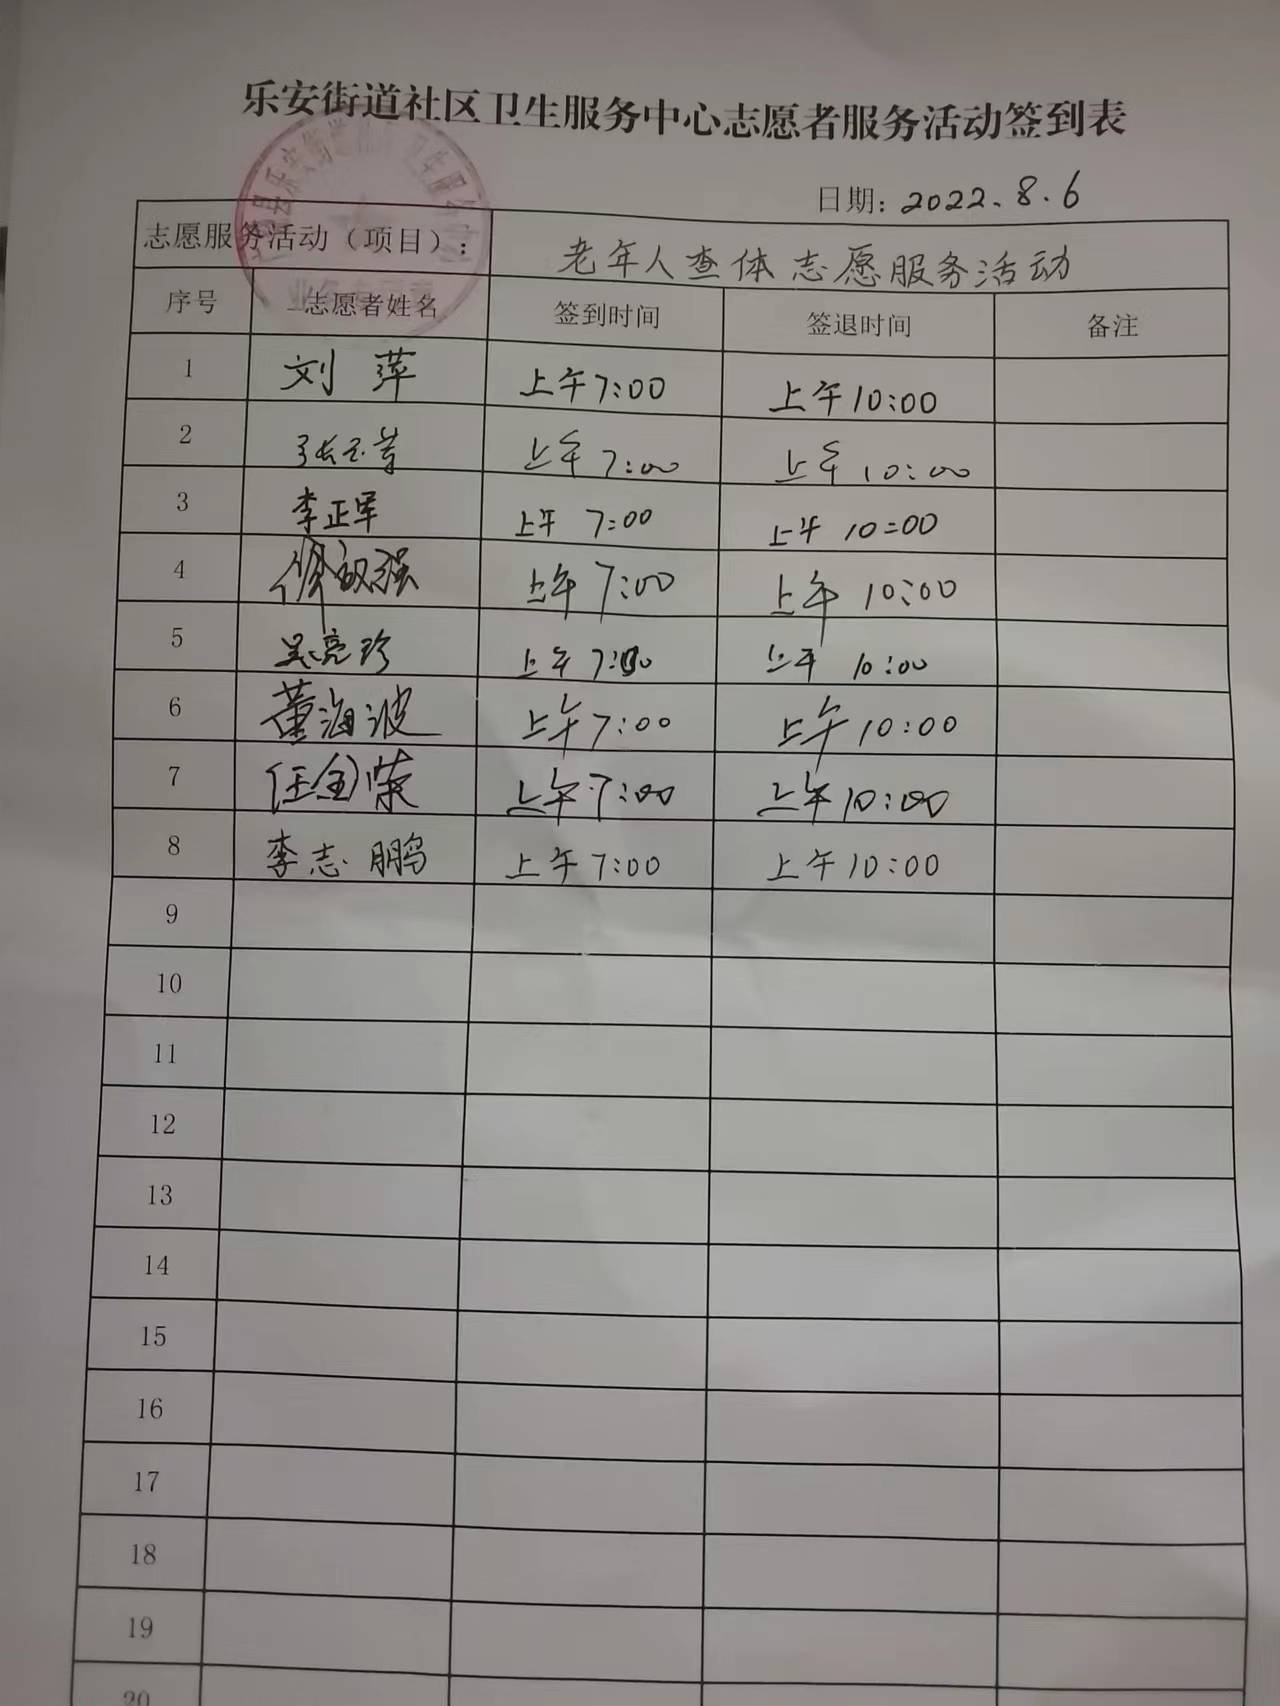 乐安街道社区卫生服务中心志愿者服务活动签到表
日期: 2022.8.6
志愿服务活动（项目）: 老年人查体志愿服务活动
序号 志愿者姓名 签到时间 签退时间 备注
1 刘萍 上午7:00 上午10:00
2 张玉 上午7:00 上午10:00
3 李正军 上午7:00 上午10:00
4 强 上午7:00 上午10:00
5 吴亮珍 上午7:00 上午10:00
6 董海波 上午7:00 上午10:00
7 任金荣 上午7:00 上午10:00
8 李志鹏 上午7:00 上午10:00
9
10
11
12
13
14
15
16
17
18
19
20